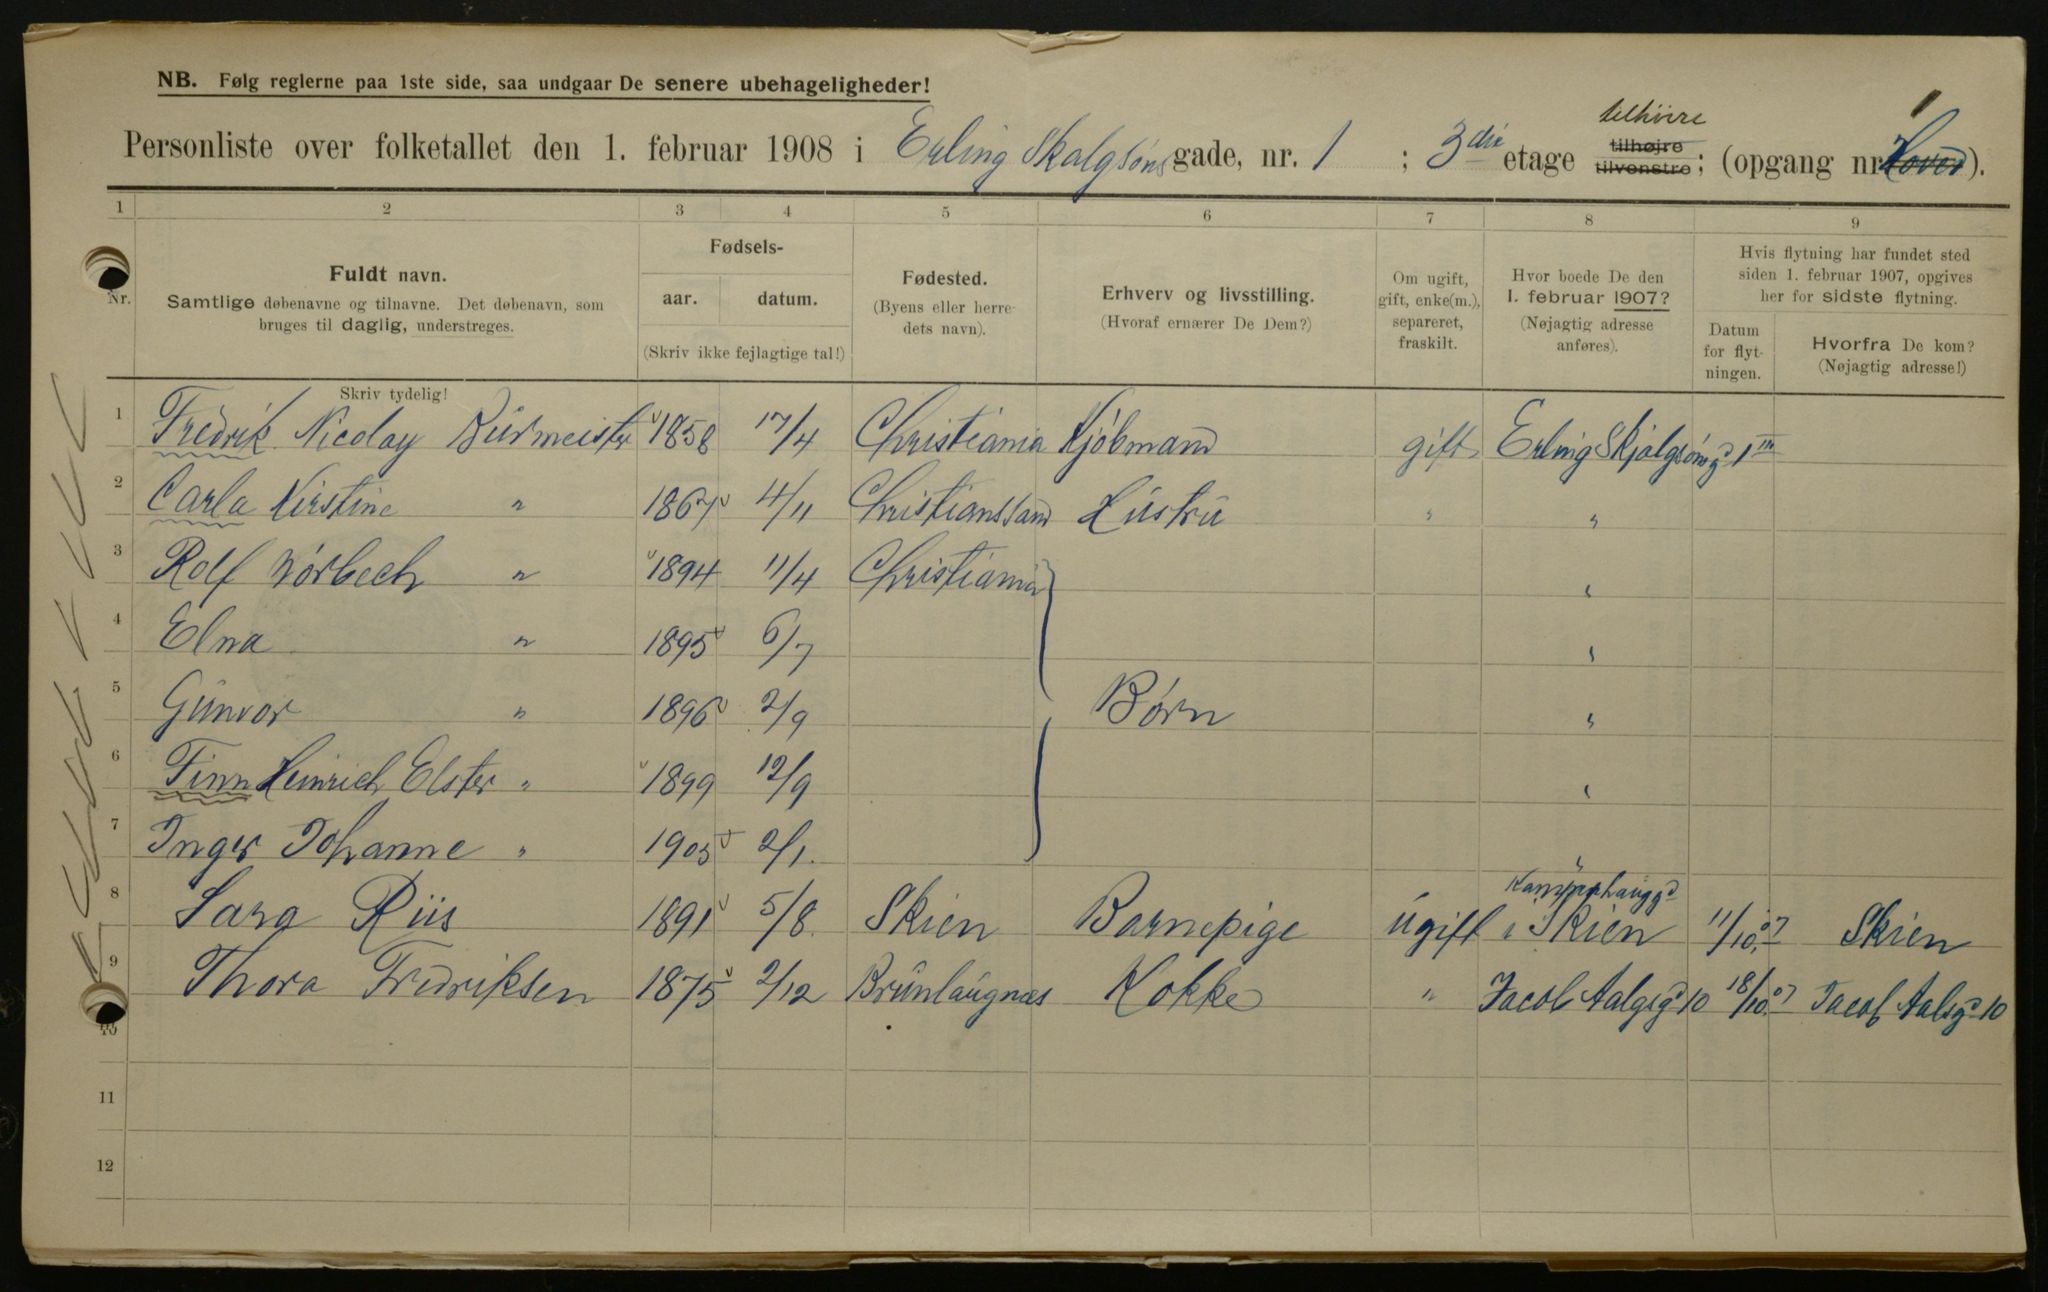 NB. Følg reglerne paa 1ste side, saa undgaar De senere ubehageligheder!
Personliste over folketallet den 1. februar 1908 i Erling Skalgsøns gade, nr. 1 ; 3die etage tilhøire tilhøjre tilvenstre; (opgang nr. Hoved 1).
1 2 3 4 5 6 7 8 9
Nr. Fuldt navn. Samtlige døbenavne og tilnavne. Det døbenavn, som bruges til daglig, understreges.
Skriv tydelig!
Fødsels- aar. datum. (Skriv ikke fejlagtige tal!)
Fødested. (Byens eller herredets navn).
Erhverv og livsstilling. (Hvoraf ernærer De Dem?)
Om ugift, gift, enke(m.), separeret, fraskilt.
Hvor boede De den 1. februar 1907? (Nøjagtig adresse anføres).
Hvis flytning har fundet sted siden 1. februar 1907, opgives her for sidste flytning.
Datum for flytningen.
Hvorfra De kom? (Nøjagtig adresse!)
1 Fredrik Nicolay Burmeister 1858 17/4 Christiania Kjöbmand gift Erling Skjalgsønsgd 1 III
2 Carla Kirstine " 1867 4/11 Christianssand Hustru " "
3 Rolf Nørbech " 1894 11/4 Christiania "
4 Elna " 1895 6/7 "
5 Gunvor " 1896 2/9 Børn "
6 Finn Heinrich Elster " 1899 12/9 "
7 Inger Johanne " 1905 2/1. "
8 Sara Riis 1891 5/8. Skien Barnepige ugift Skien 11/10.07 Skien
9 Thora Fredriksen 1875 2/12 Brunlaugnæs Kokke " Jacob Aalsgd 10 18/10.07 Jacob Aalsgd 10
10
11
12